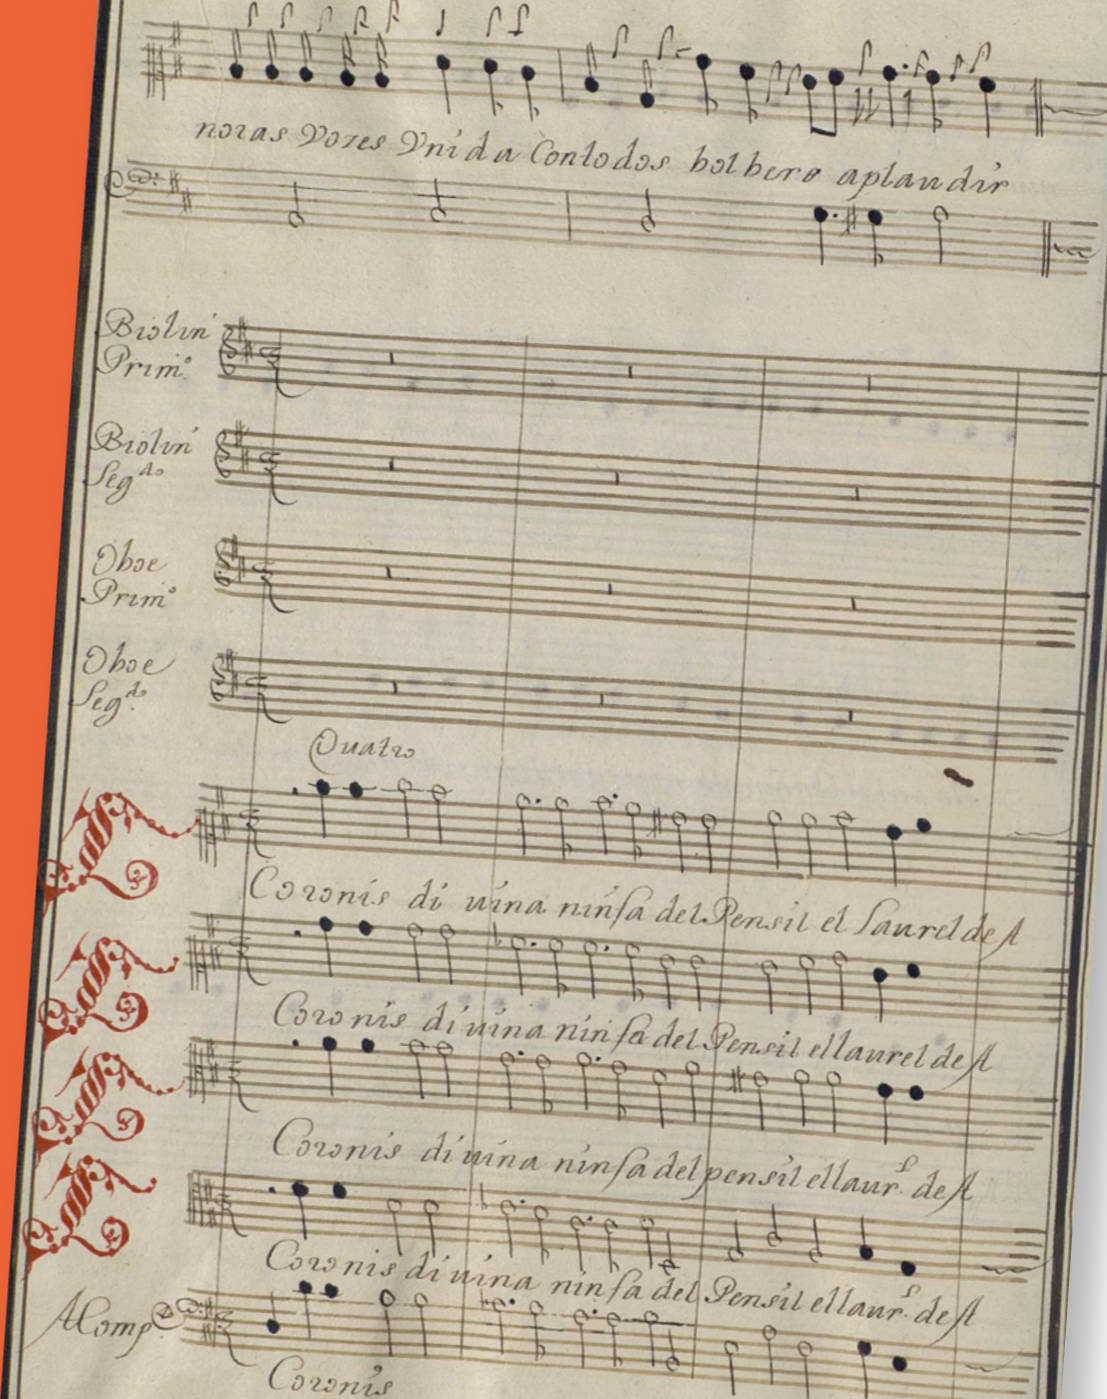 noras Vozes Vnida Contodos bolbero aplaudir
Biolin
Prim.º
Biolin
Seg.do
Oboe
Prim.º
Oboe
Seg.do
Quatro
Coronis di uina ninfa del Pensil el laurel de A
Coronis diuina ninfa del Pensil el laurel de A
Coronis diuina ninfa del pensil el laur.l de A
Coronis diuina ninfa del Pensil el laur.l de A
AComp.to
Coronis